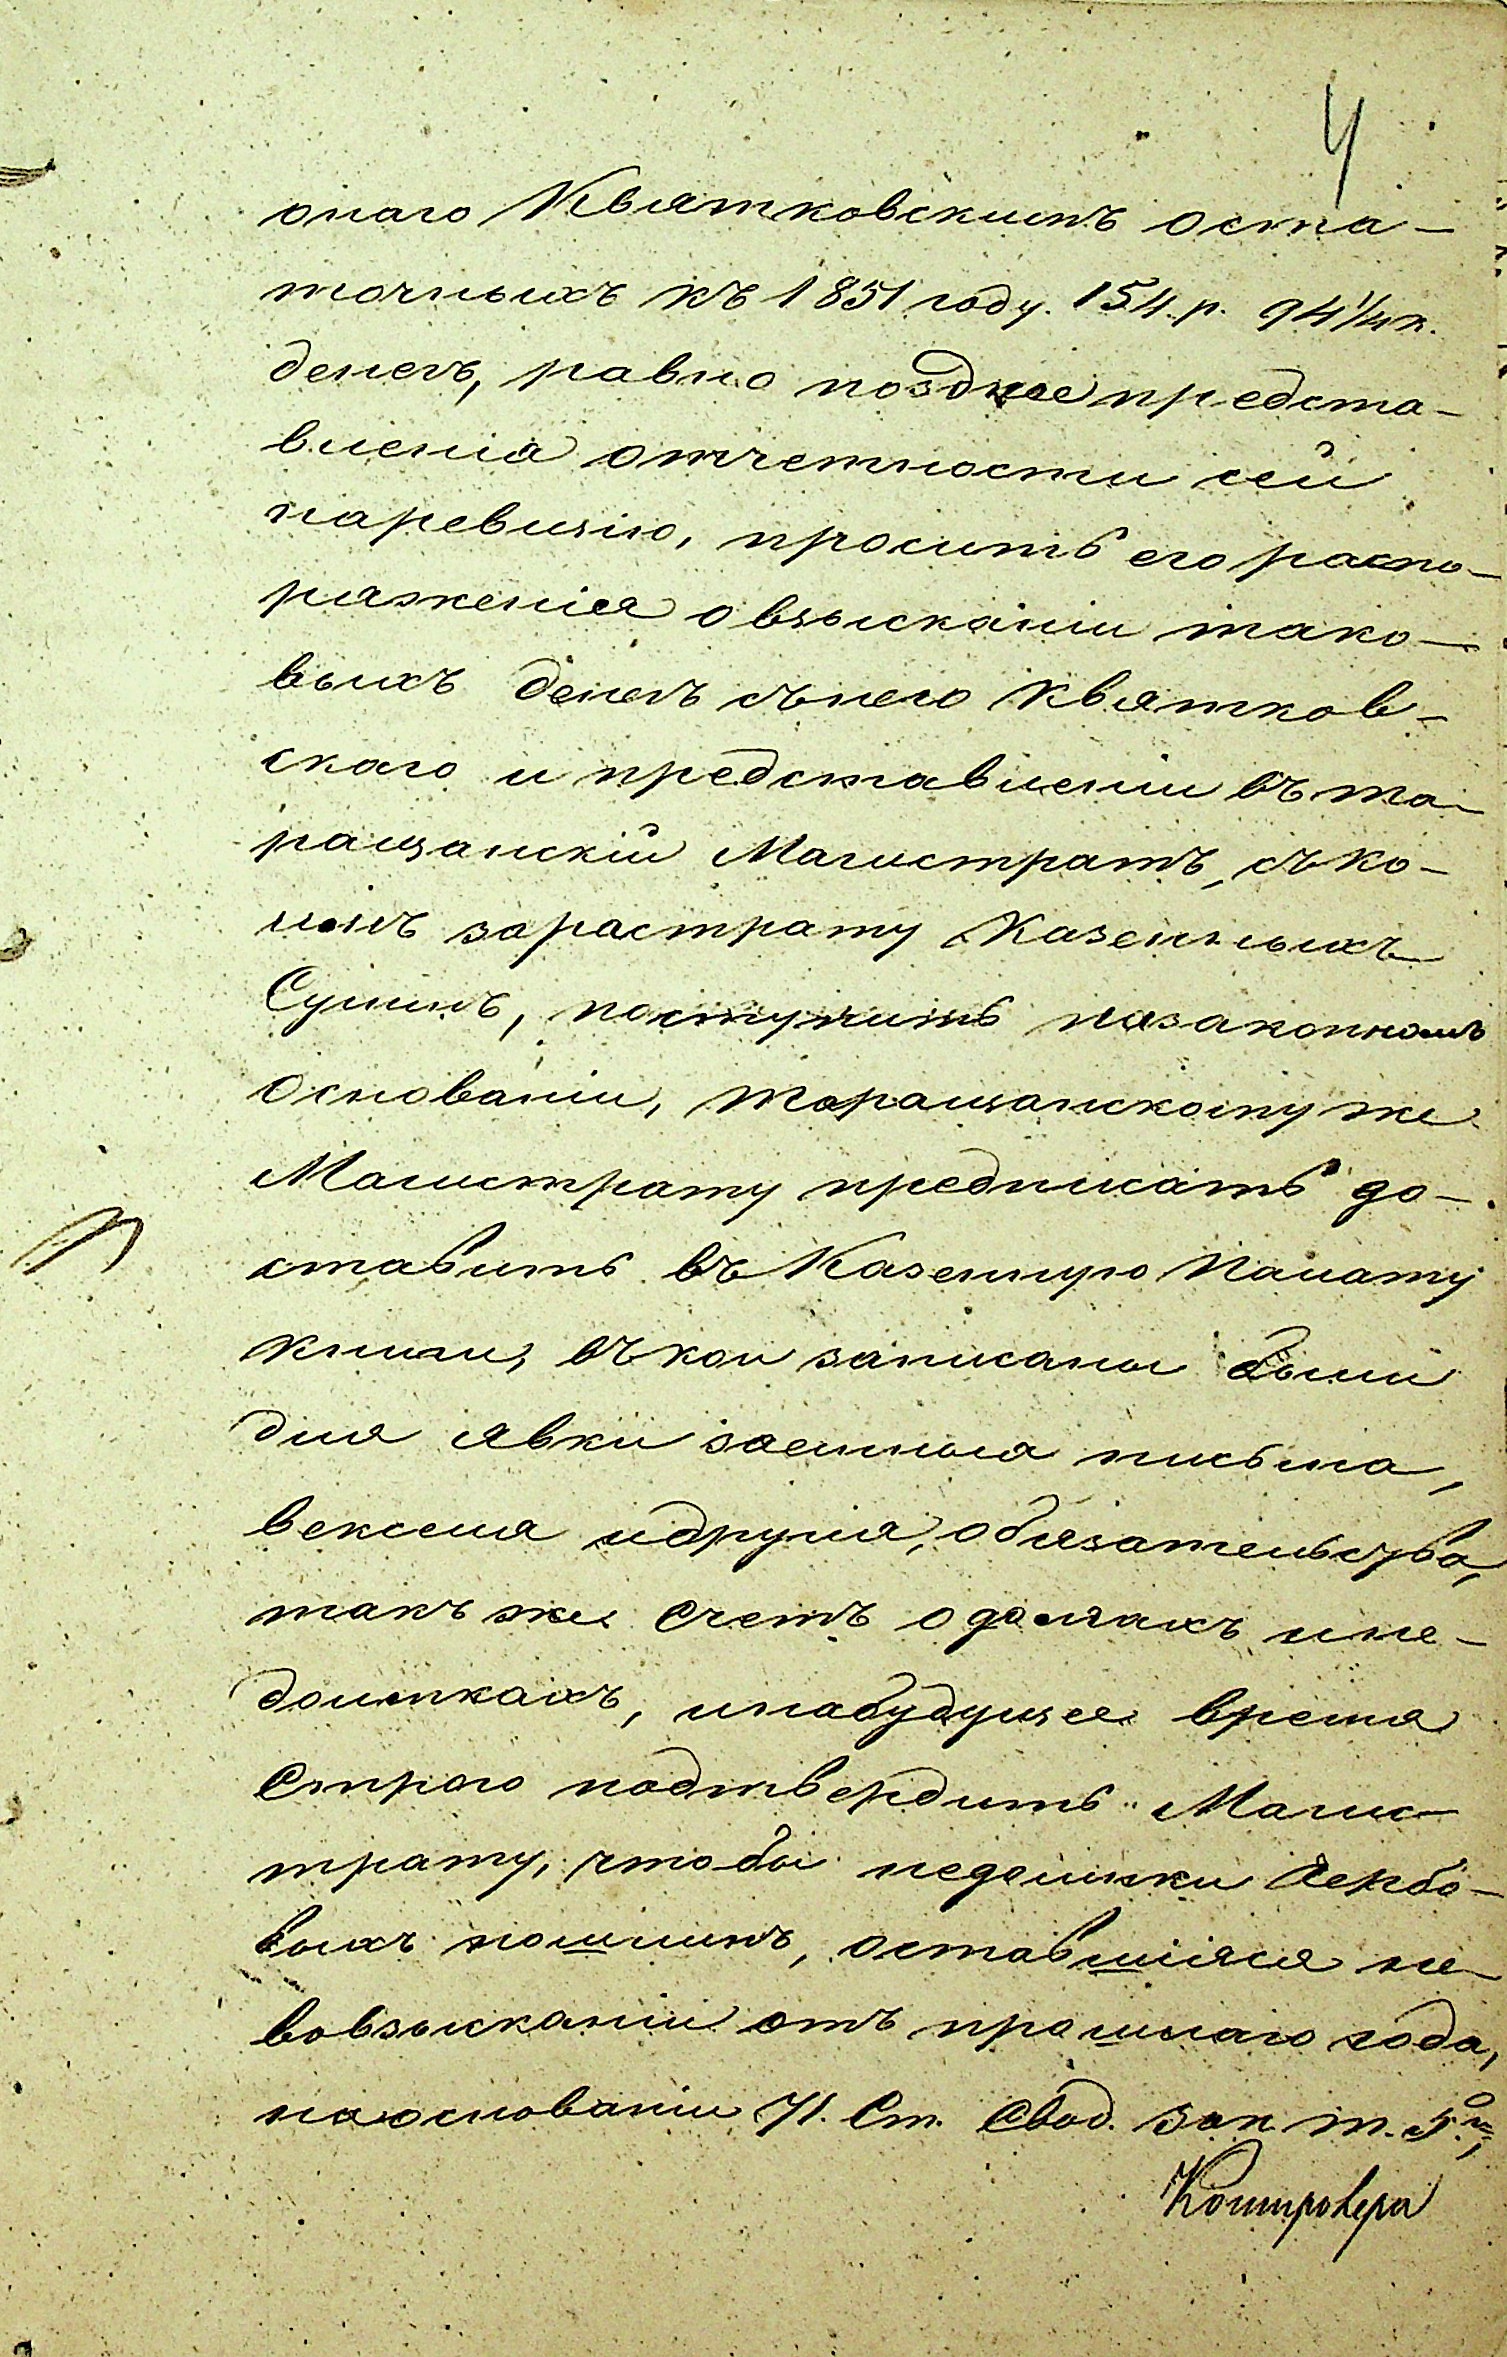 4
онаго Квятковскимъ оста-
точныхъ къ 1851 году. 154. р. 94 1/4 к.
денегъ, равно позднее предста-
вленіа отчетности сей
наревизію, проситъ его распо-
ряженія о взысканіи тако-
выхъ денегъ съ него Квятков-
скаго и представленіи въ та-
ращанскій Магистратъ, съ ко-
имъ зарастрату Казенныхъ
Суммъ, поступить назаконномъ
основаніи, таращанскому же
Магистрату предписать до-
ставить въ Казенную Палату
книги, въ кои записаны были
для явки заемныя письма,
векселя и другія, обязательства,
такъ же счетъ о долгахъ и не-
доимкахъ, и на будущее время
Строго подтвердить Магис-
трату, чтобы недоимки Герббо-
выхъ пошлинъ, оставшіяся не-
вовзысканіи отъ прошлаго года,
на основаніи 71. Ст. Свод. Зак. т. 5.го,
Контролера